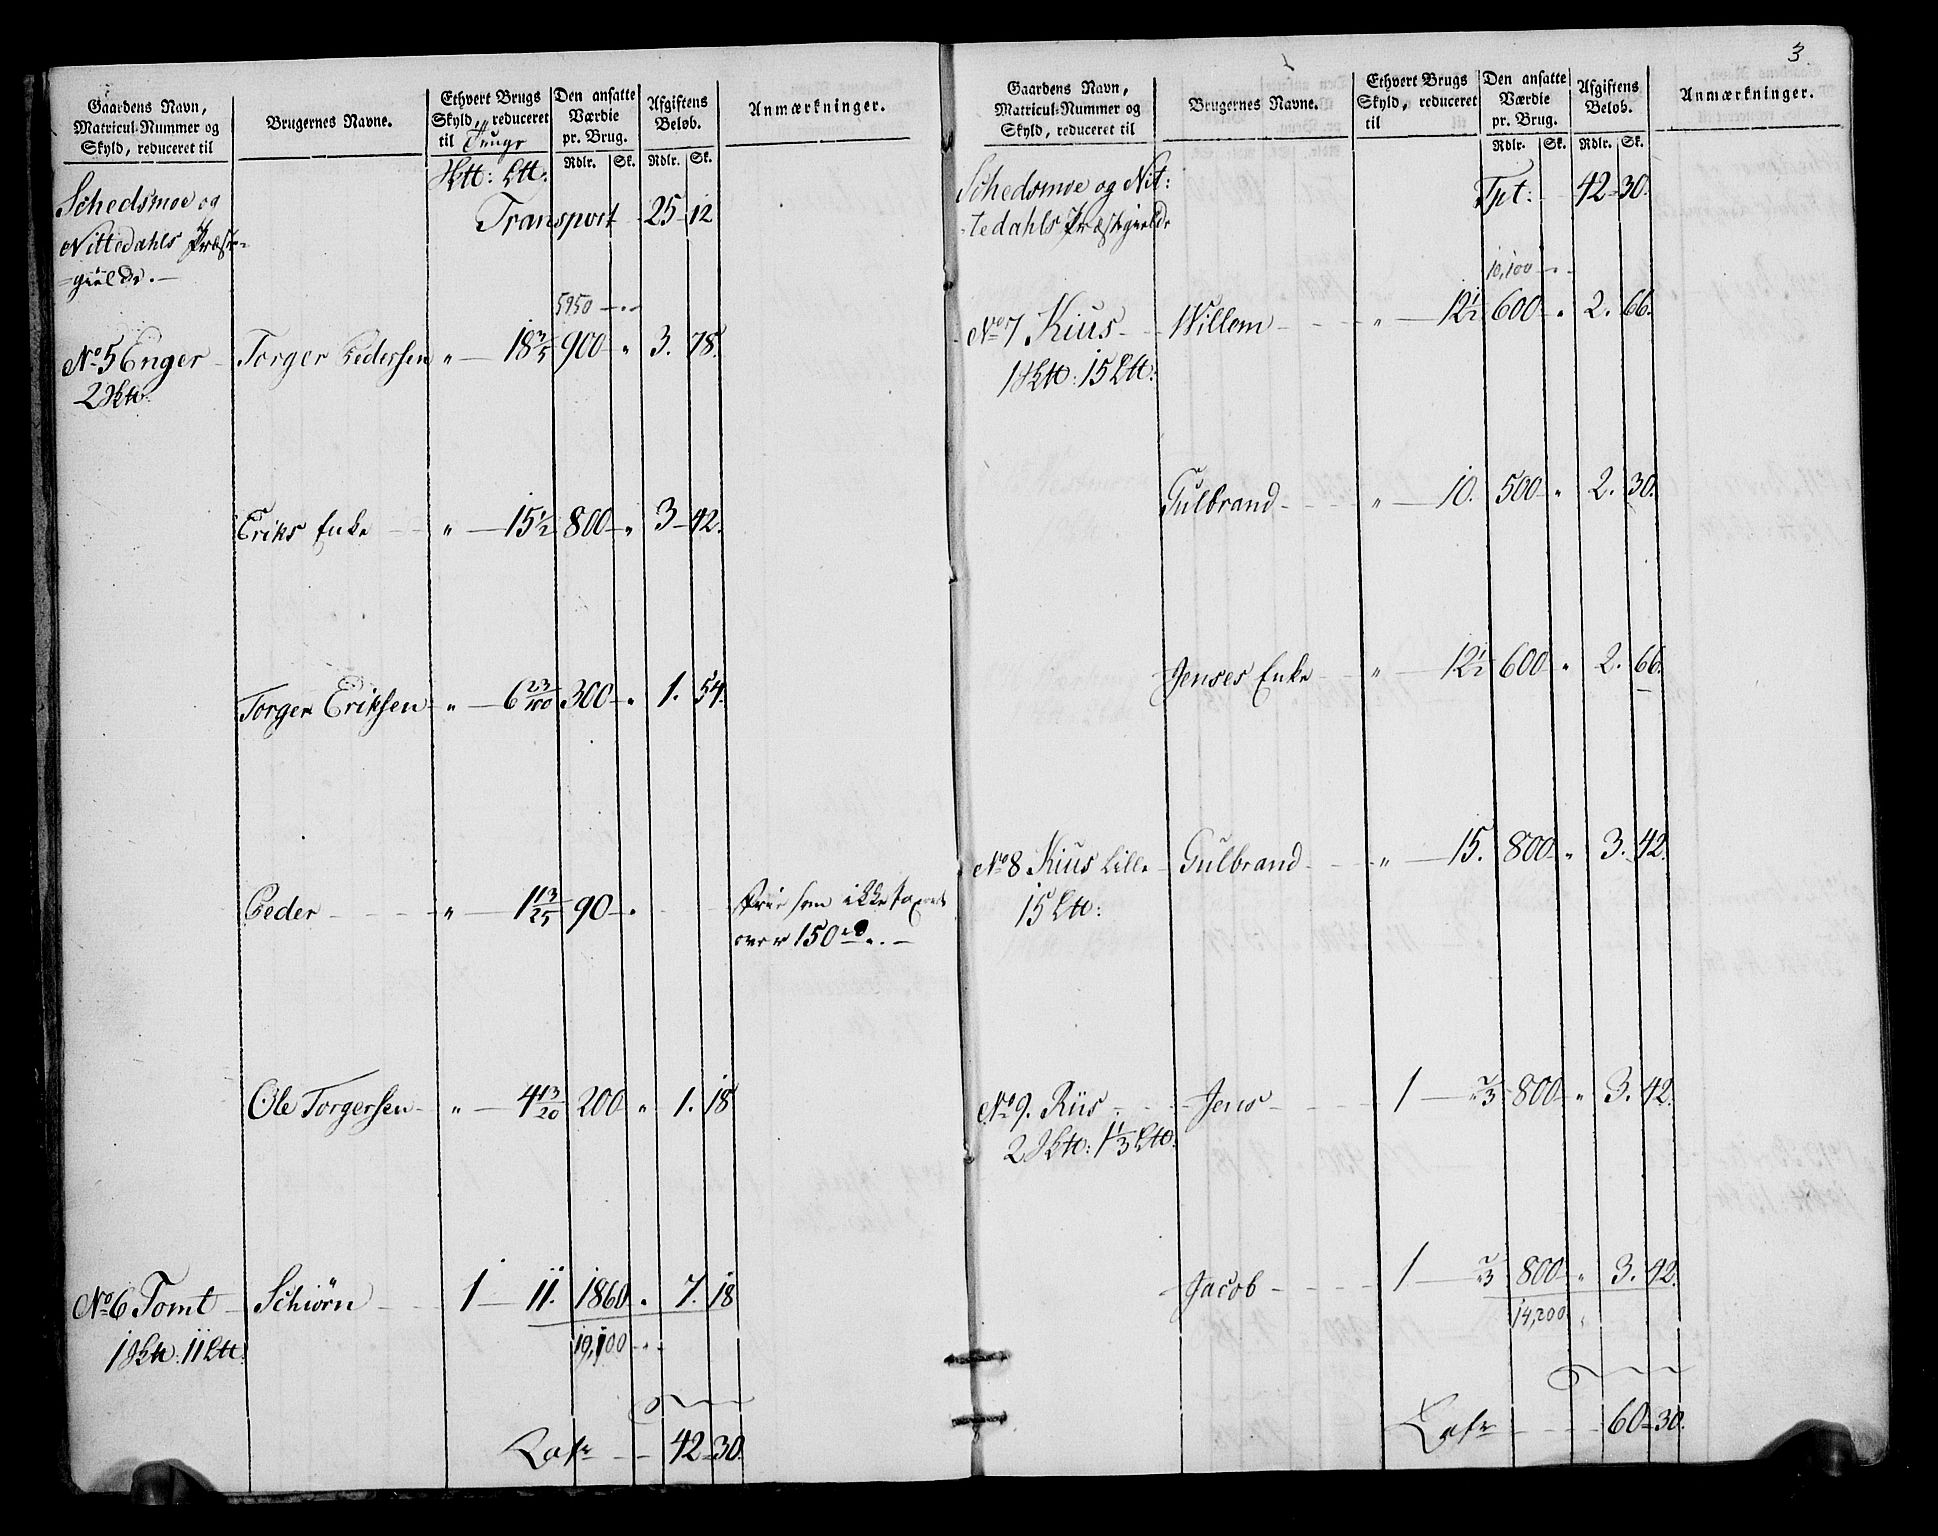 Gaardens Navn,
Matricul-Nummer og
Skyld, reduceret til
Brugernes Navne.
Ethvert Brugs
Skyld, reduceret
til Tunge
Den ansatte
Værdie
pr. Brug.
Afgiftens
Beløb.
Anmærkninger.
Rdlr. Sk. Rdlr. Sk.
Schedsmoe og
Nittedahls Præste-
-gield.
Transport 25 - 12
5950
No 5 Enger Torger Pedersen " 18 3/5 900 " 3. 78.
Eriks Enke " 15 1/2 800 " 3 - 42.
Torger Eriksen " 6 23/100 300 " 1. 54.
Peder " 1 13/25 90 "
over 150 rd.
Ole Torgersen " 4 13/20 200 " 1. 18
No 6 Tomt Schiörn 1 11. 1860 " 7. 18
19,100
Late 42 = 30.
3.
Gaardens Navn,
Matricul-Nummer og
Skyld, reduceret til
Brugernes Navne.
Ethvert Brugs
Skyld, reduceret
til
Den ansatte
Værdie
pr. Brug.
Afgiftens
Beløb.
Anmærkninger.
Rdlr. Sk. Rdlr. Sk.
Schedsmoe og Nit:
-tedahls Præstegield
Tpt: 42 = 30.
10,100
No 7 Kius Willem " 12 1/2 600 " 2. 66.
Gulbrand " 10. 500 " 2. 30.
Jenses Enke " 12 1/2 600 " 2. 66.
No 8 Kius Lille Gulbrand " 15. 800 " 3. 42.
No 9. Riis Jens 1 2/3 800 " 3. 42.
Jacob 1 2/3 800 " 3. 42.
14,200
Late 60 = 30.